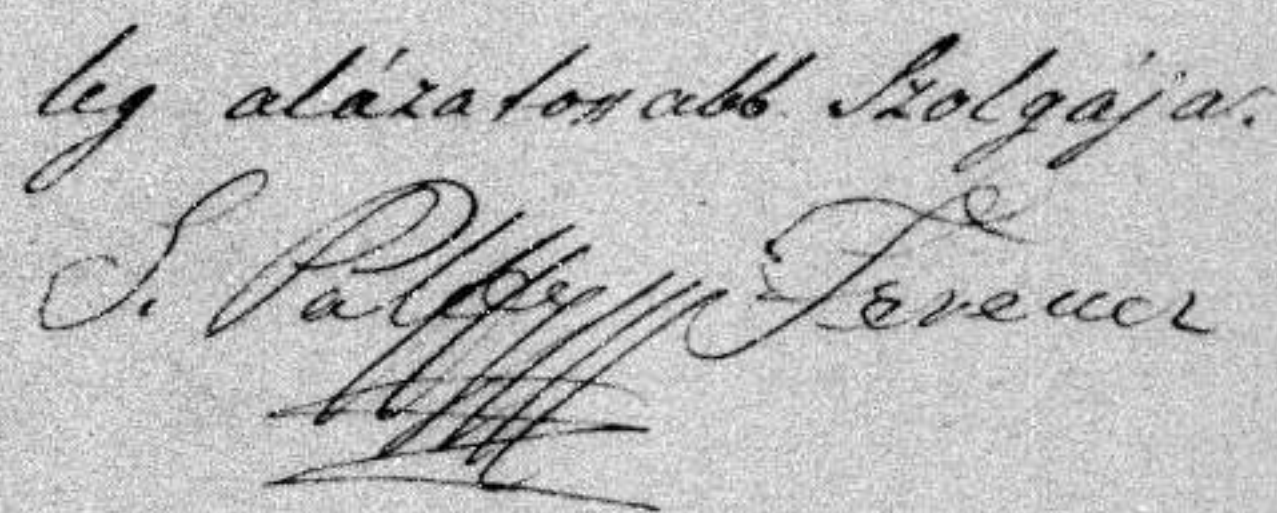 leg alázatossabb Szolgája.
S. Pálffy Ferencz